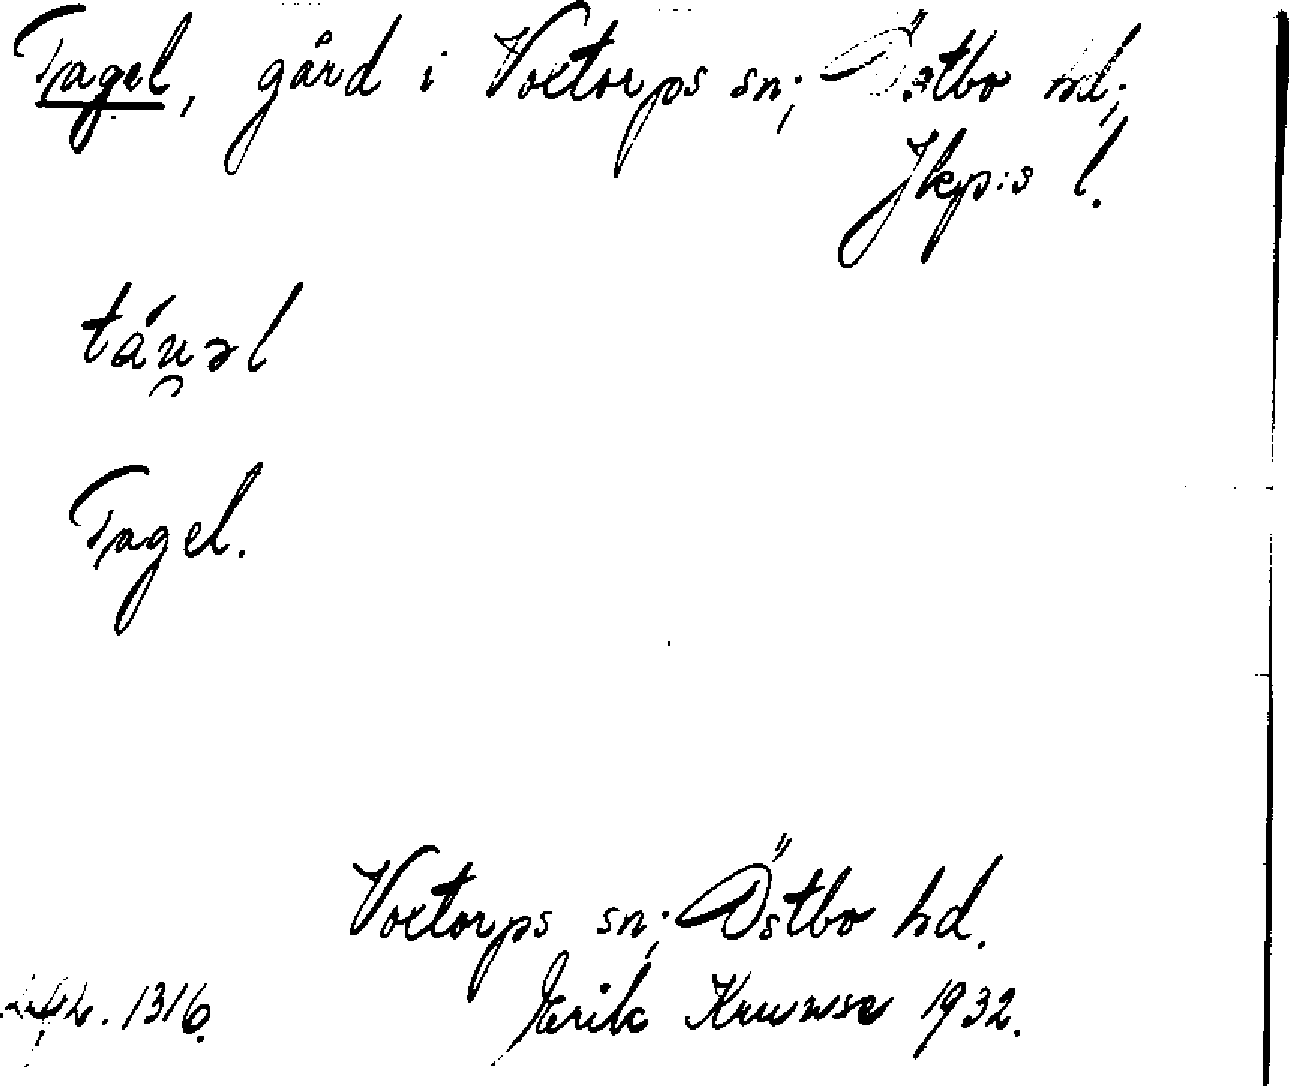 Tagel, gård i Voxtorps sn; Östbo hd;
Jkp:s l.
Tagel.
Voxtorps sn; Östbo hd.
1316. Erik Kruuse 1932.